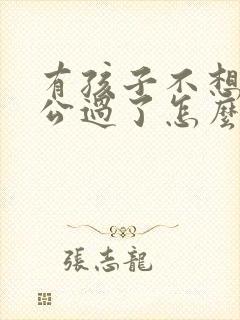 有孩子不想
公過了怎麼
張志龍